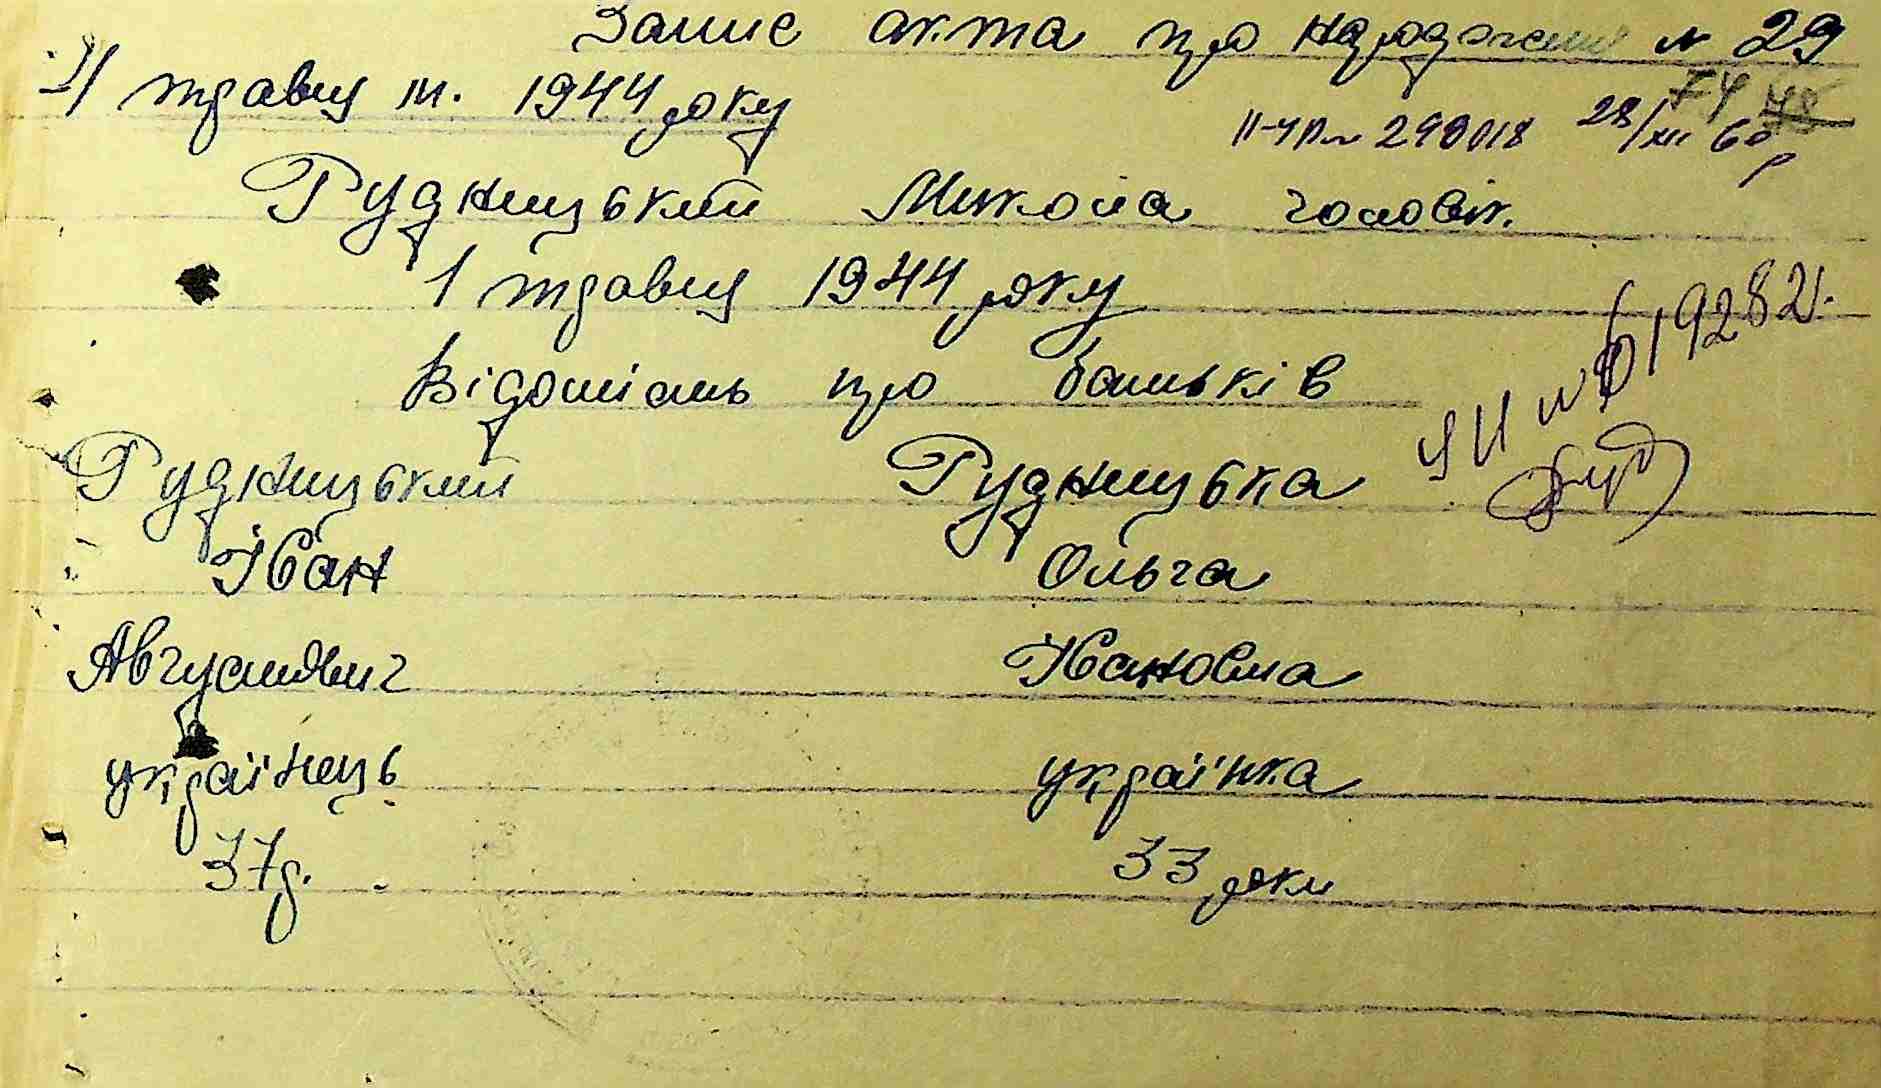 Запис акта про народження № 29
травня м. 1944 року
74 78
ІІ-УП № 290018 28/XII 60 р
Рудницький Микола чоловік.
1 травня 1944 року
Відомість про батьків
№ 619282
Рудницький Рудницька
Іван Ольга
Августович Івановна
українець українка
37 р. 33 роки